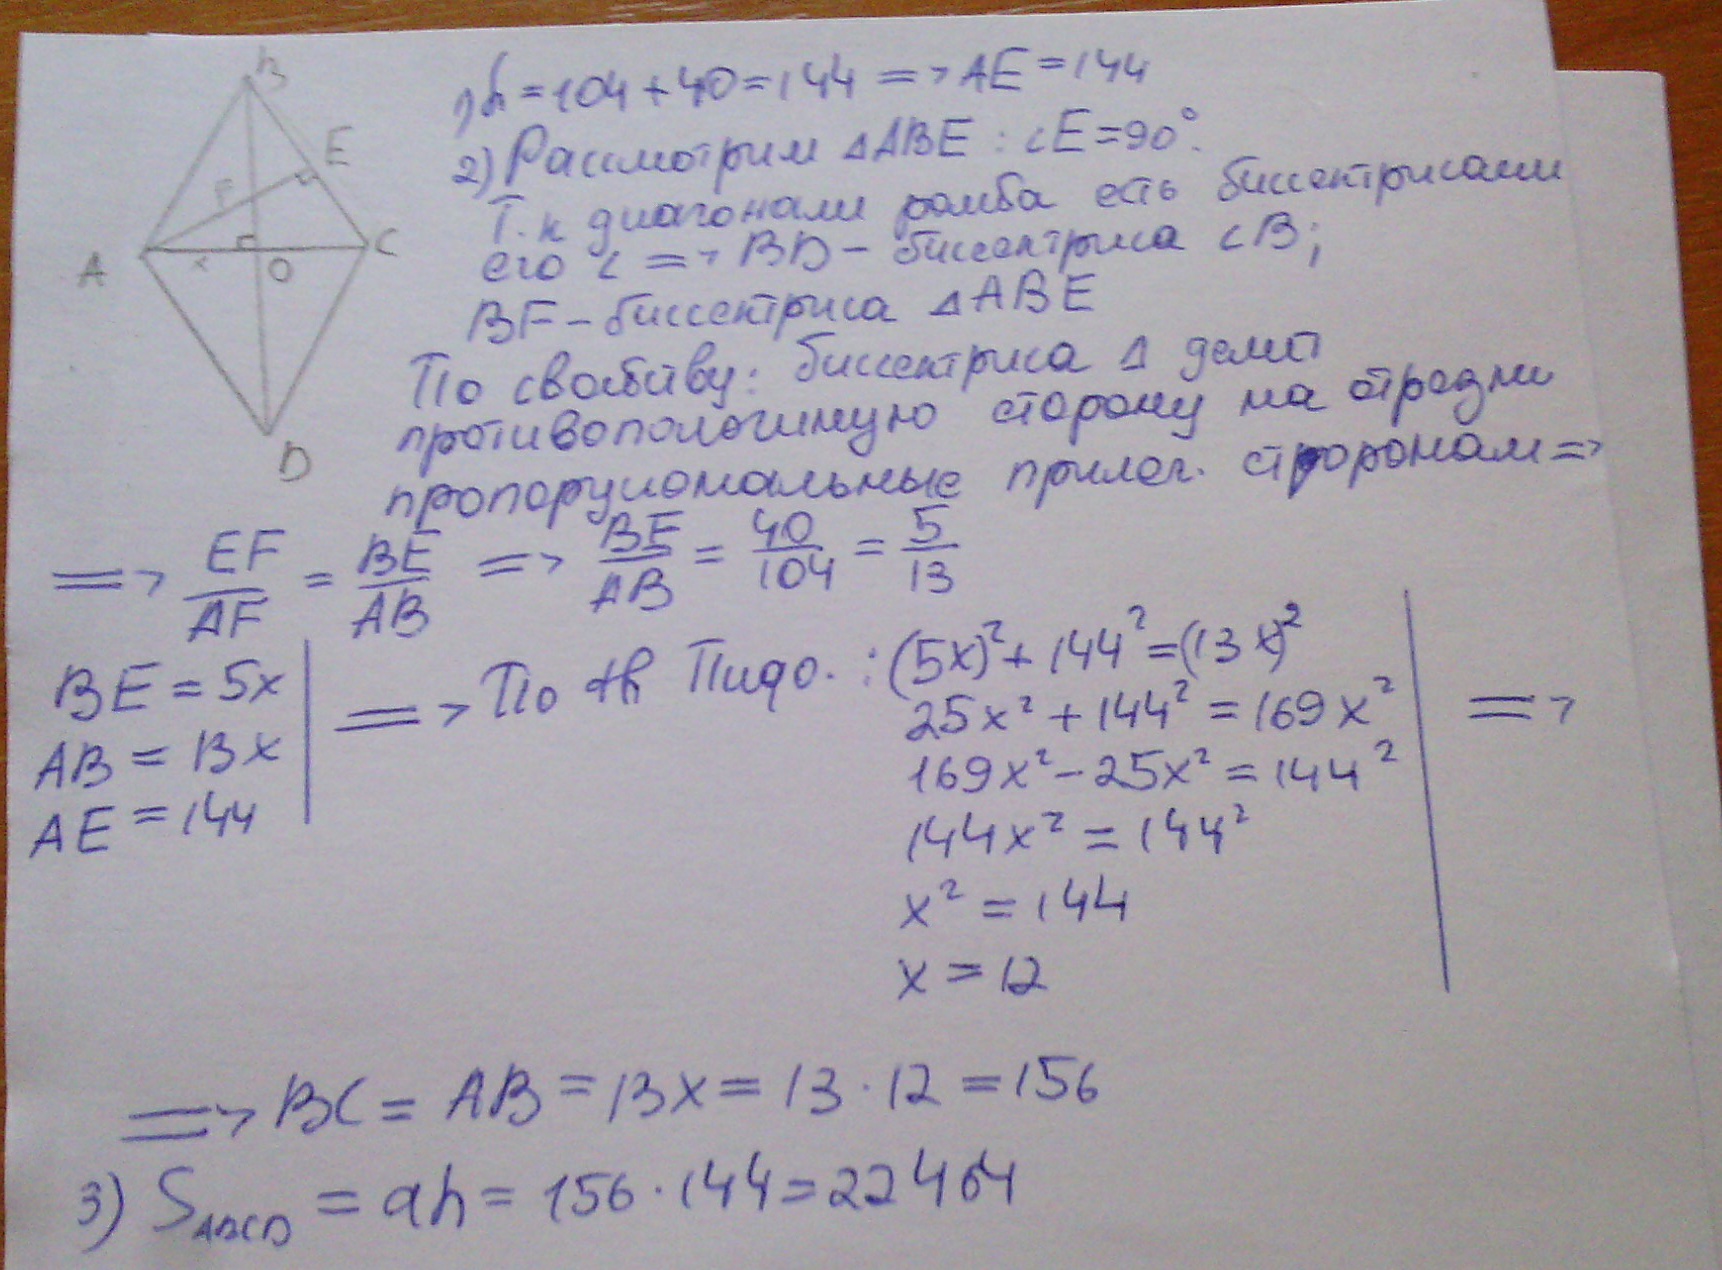 B
E
F
A
x
O
C
D
1) h = 104 + 40 = 144 => AE = 144
2) Рассмотрим △ABE : ∠E = 90°.
Т.к диагонали ромба есть биссектрисами
его ∠ => BD – биссектриса ∠B;
BF – биссектриса △ABE
По свойству: биссектриса △ делит
противоположную сторону на отрезки
пропорциональные прилег. сторонам =>
=> EF/AF = BE/AB => BE/AB = 40/104 = 5/13
BE = 5x
AB = 13x
AE = 144
=> По th Пифо. : (5x)² + 144² = (13x)²
25x² + 144² = 169x²
169x² – 25x² = 144²
144x² = 144²
x² = 144
x = 12
=>
=> BC = AB = 13x = 13 · 12 = 156
3) S_ABCD = ah = 156 · 144 = 22464